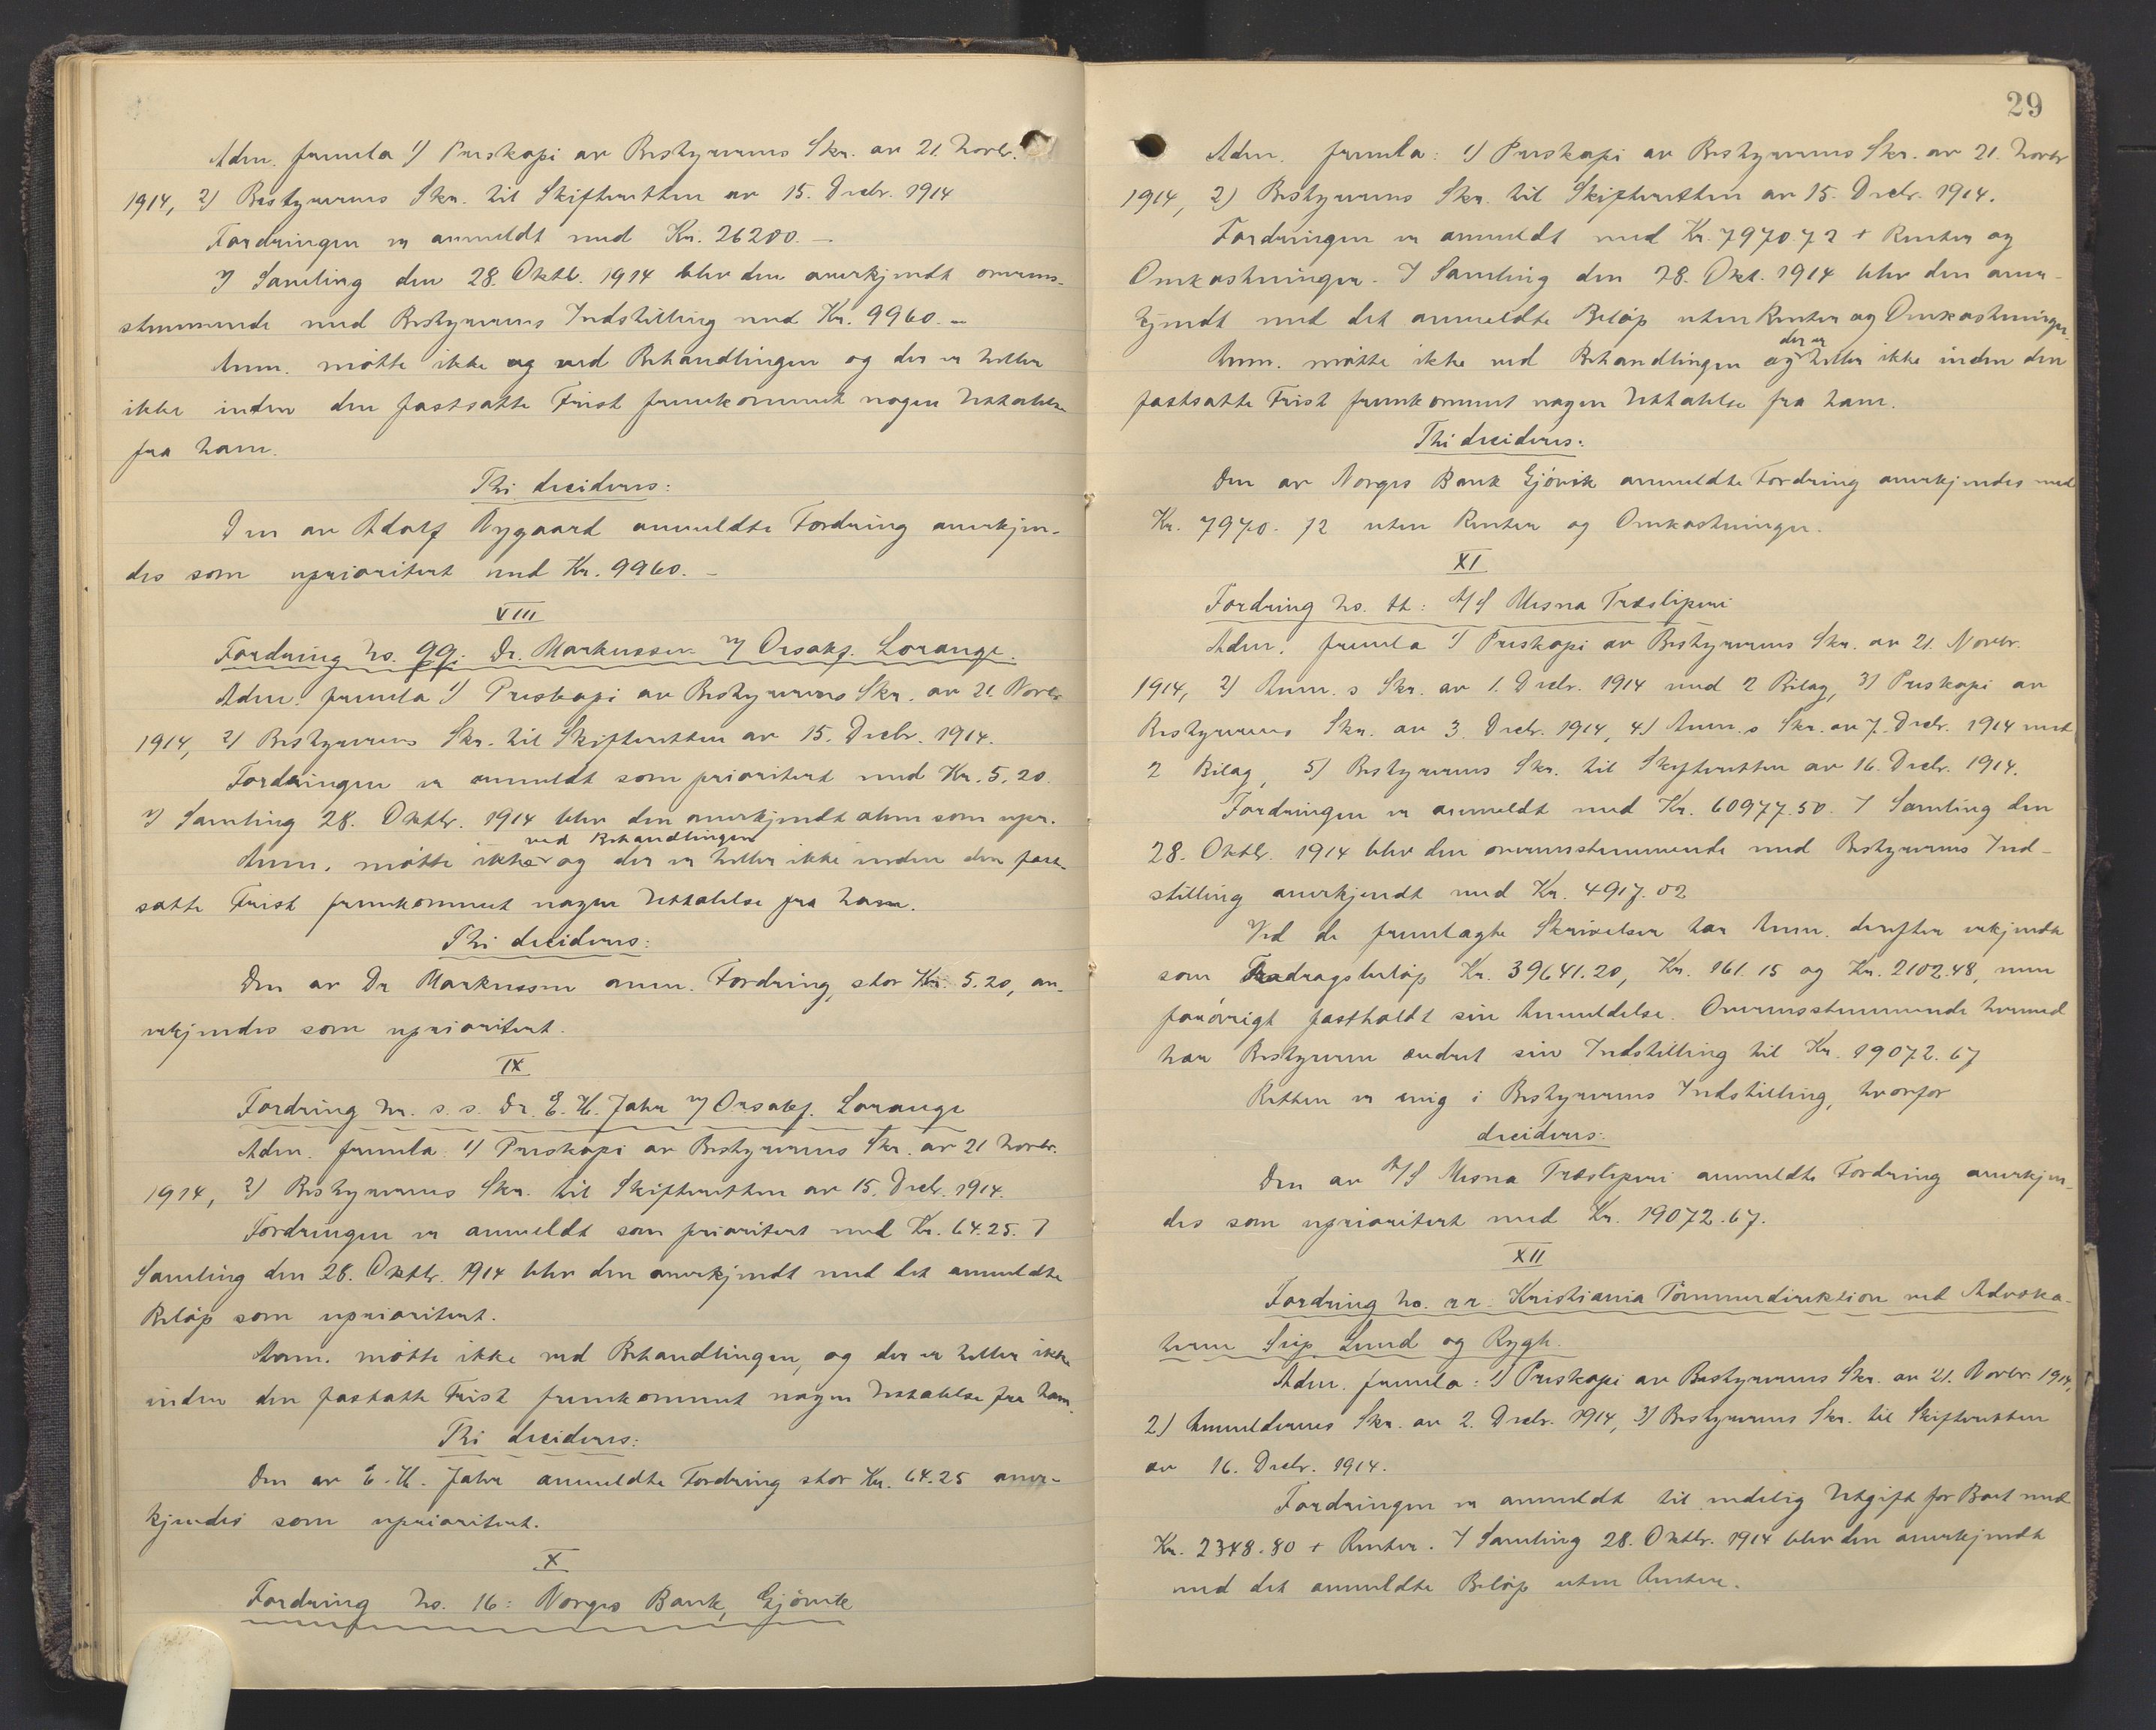 Adm. fremla 1) Preskopi av Bestyrerens Skr. av 21. Novbr.
1914, 2) Bestyrerens Skr. til Skifteretten av 15. Decbr. 1914
Fordringen er anmeldt med Kr. 26200.-
I Samling den 28. Oktb. 1914 blev den anerkjendt overens-
stemmende med Bestyrerens Indstilling med Kr. 9960.-
Anm. møtte ikke og ved Behandlingen og der er heller
ikke inden den fastsatte Frist fremkommet nogen Uttalelse
fra ham.
Thi decideres:
Den av Adolf Nygaard anmeldte Fordring anerkjen-
des som uprioritert med Kr. 9960.-
VIII
Fordring No. qq. Dr. Markussen v/ Orsakf. Lorange.
Adm. fremla 1) Preskopi av Bestyrerens Skr. av 21. Novbr
1914, 2) Bestyrerens Skr. til Skifteretten av 15. Decbr. 1914.
Fordringen er anmeldt som prioritert med Kr. 5.20.
I Samling 28. Oktbr. 1914 blev den anerkjendt alene som upr.
ved Behandlingen
Anm. møtte ikke og der er heller ikke inden den fast-
satte Frist fremkommet nogen Uttalelse fra ham.
Thi decideres:
Den av Dr Markussen anm. Fordring, stor Kr. 5.20, an-
erkjendes som uprioritert.
IX
Fordring Nr. s.s. Dr. E. H. Jahr v/ Orsakf. Lorange
Adm. fremla 1) Preskopi av Bestyrerens Skr. av 21 Novbr.
1914, 2) Bestyrerens Skr. til Skifteretten av 15. Decbr. 1914.
Fordringen er anmeldt som prioritert med Kr. 64.25. I
Samling den 28. Oktbr. 1914 blev den anerkjendt med det anmeldte
Beløp som uprioritert.
Anm. møtte ikke ved Behandlingen, og der er heller ikke
inden den fastsatte Frist fremkommet nogen Uttalelse fra ham.
Thi decideres:
Den av E. H. Jahr anmeldte Fordring stor Kr. 64.25 aner-
kjendes som uprioritert.
X
Fordring No. 16: Norges Bank, Gjøvik
29
Adm. fremla: 1) Preskopi av Bestyrerens Skr. av 21. Novbr
1914, 2) Bestyrerens Skr. til Skifteretten av 15. Decbr. 1914.
Fordringen er anmeldt med Kr. 7970.72 + Renter og
Omkostninger. I Samling den 28. Okt. 1914 blev den aner-
kjendt med det anmeldte Beløp uten Renter og Omkostninger.
der er
Anm. møtte ikke ved Behandlingen og heller ikke inden den
fastsatte Frist fremkommet nogen Uttalelse fra ham.
Thi decideres:
Den av Norges Bank Gjøvik anmeldte Fordring anerkjendes med
Kr. 7970.72 uten Renter og Omkostninger.
XI
Fordring No. tt: A/S Mesna Træsliperi
Adm. fremla 1) Preskopi av Bestyrerens Skr. av 21. Novbr.
1914, 2) Anm.s Skr. av 1. Decbr. 1914 med 2 Bilag, 3) Preskopi av
Bestyrerens Skr. av 3. Decbr. 1914, 4) Anm.s Skr. av 7. Decbr. 1914 med
2 Bilag, 5) Bestyrerens Skr. til Skifteretten av 16. Decbr. 1914.
Fordringen er anmeldt med Kr. 60977.50. I Samling den
28. Oktbr. 1914 blev den overensstemmende med Bestyrerens Ind-
stilling anerkjendt med Kr. 4917.02
Ved de fremlagte Skrivelser har Anm. derefter erkjendt
som Fradragsbeløp Kr. 39641.20, Kr. 161.15 og Kr. 2102.48, men
forøvrigt fastholdt sin Anmeldelse. Overensstemmende hermed
har Bestyreren endret sin Indstilling til Kr. 19072.67
Retten er enig i Bestyrerens Indstilling, hvorfor
decideres:
Den av A/S Mesna Træsliperi anmeldte Fordring anerkjen-
des som uprioritert med Kr. 19072.67.
XII
Fordring No. rr. Kristiania Tømmerdirektion ved Advoka-
terne Seip, Lund og Rygh.
Adm. fremla: 1) Preskopi av Bestyrerens Skr. av 21. Novbr. 1914,
2) Anmeldernes Skr. av 2. Decbr. 1914, 3) Bestyrerens Skr. til Skifteretten
av 16. Decbr. 1914.
Fordringen er anmeldt til endelig Utgift for Boet med
Kr. 2348.80 + Renter. I Samling 28. Oktbr. 1914 blev den anerkjendt
med det anmeldte Beløp uten Renter.